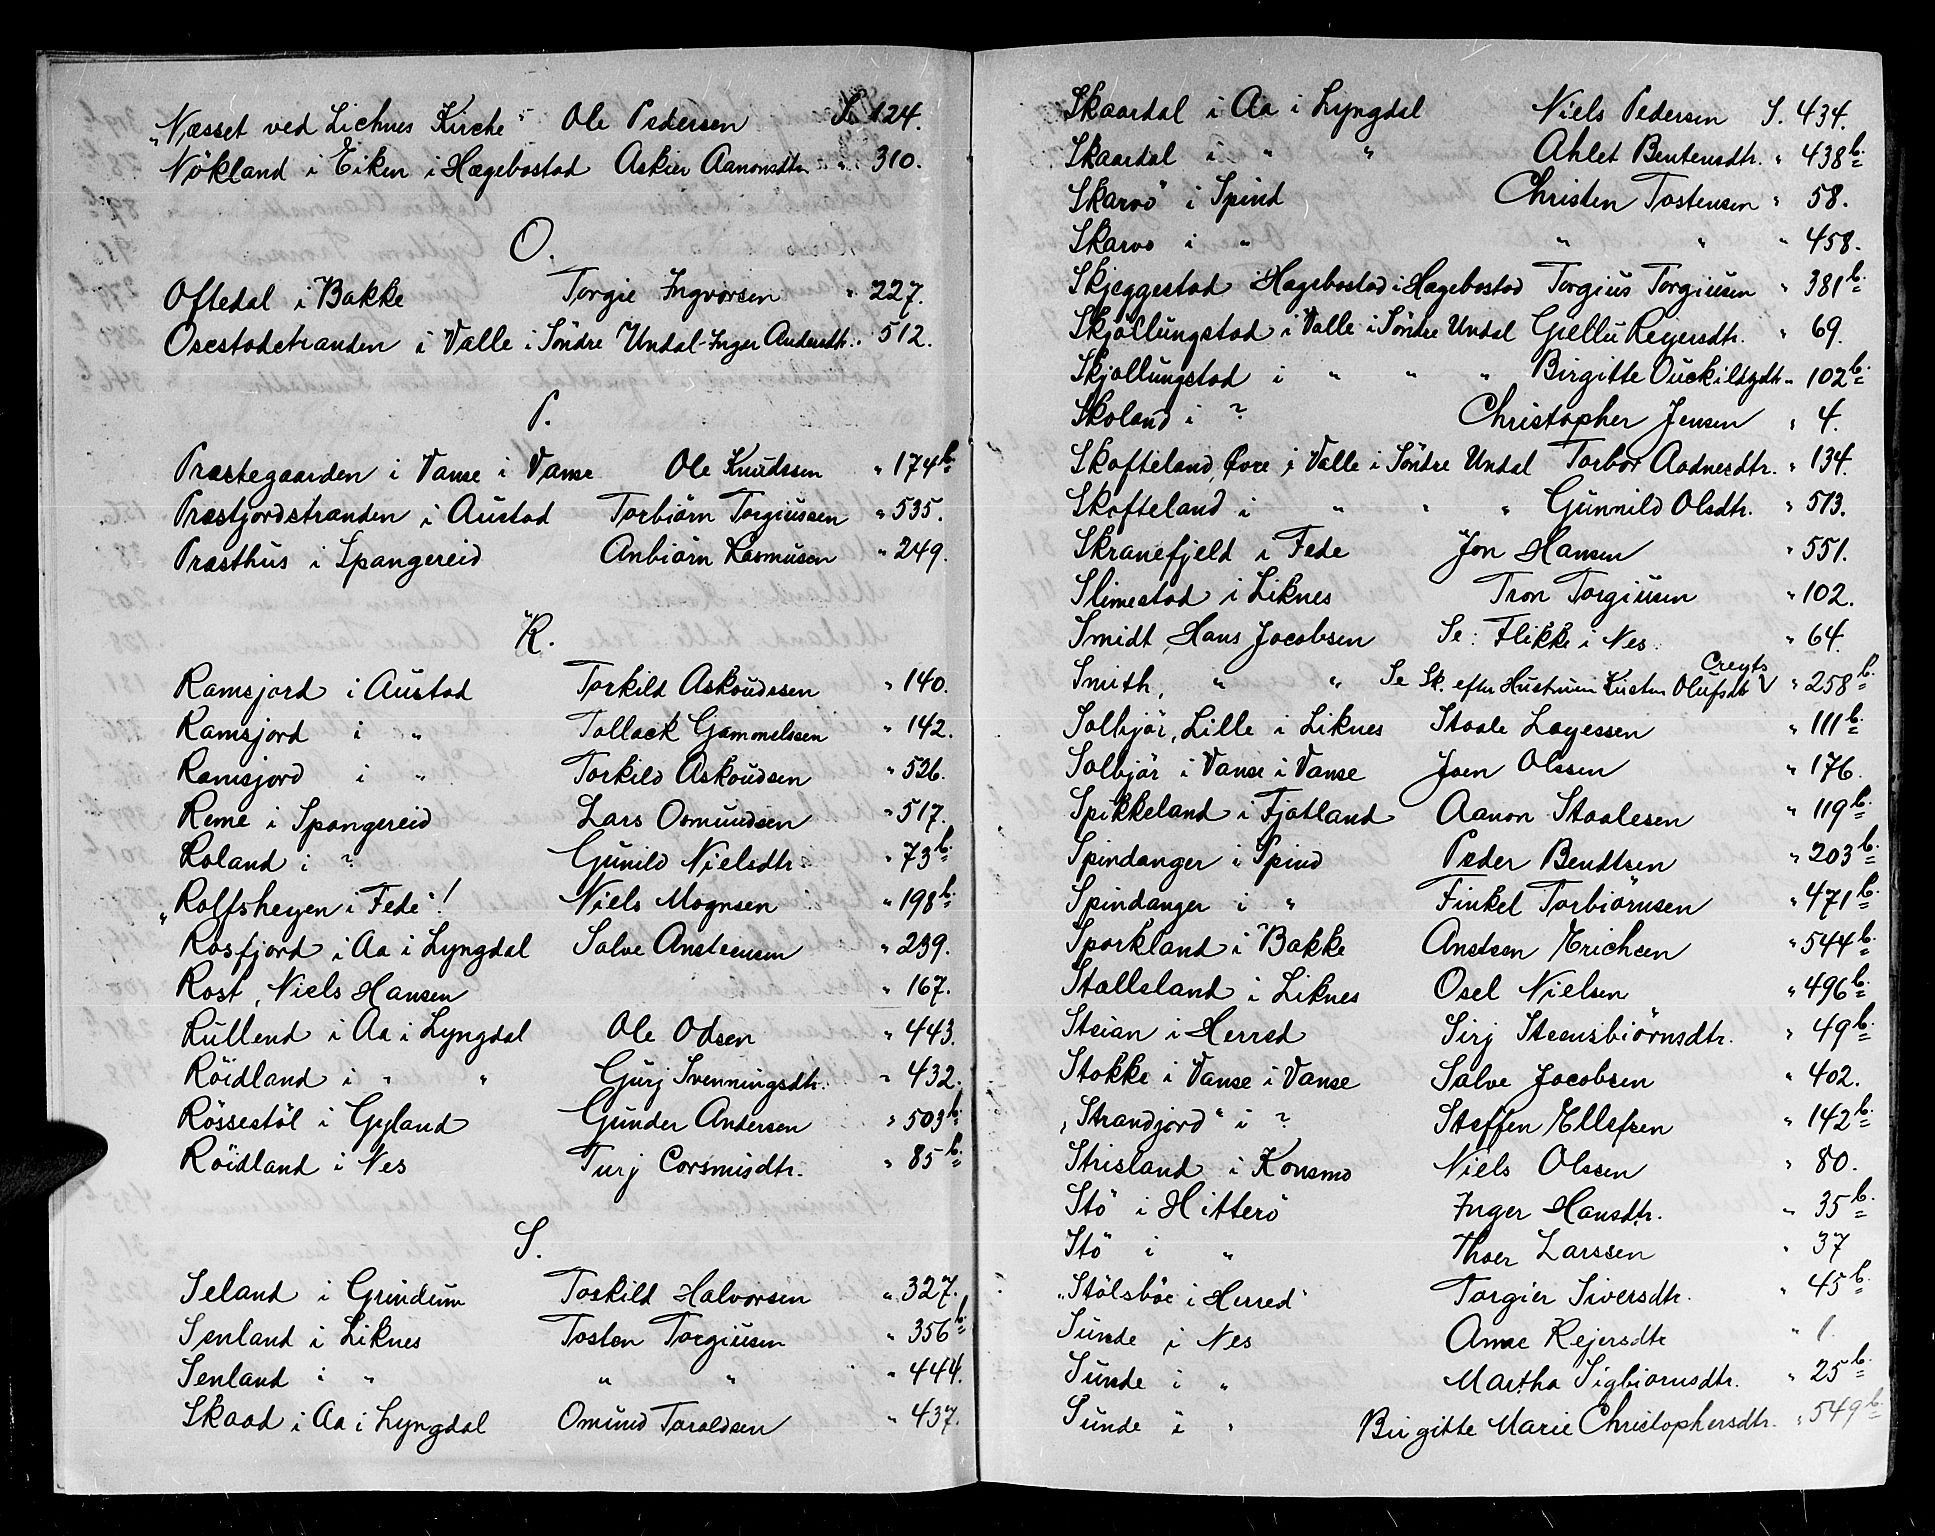 „Næsset ved Lichnes Kirche“ Ole Pedersen S. 124.
Nökland i Eiken i Hægebostad Askier Aanonsdtr. „ 310.
O.
Oftedal i Bakke Torgie Ingvorsen „ 227.
Osestadstranden i Valle i Söndre Undal Inger Andersdtr. „ 512.
P.
Præstegaarden i Vanse i Vanse Ole Knudssen „ 174 b.
Præstjordstranden i Austad Torbiörn Torgiussen „ 535.
Præsthus i Spangereid Anbiörn Rasmusen „ 249.
R.
Ramsjord i Austad Torkild Askoudssen „ 140.
Ramsjord i „ Tollack Gammelssen „ 142.
Ramsjord i „ Torkild Askoudsen „ 526.
Reme i Spangereid Lars Osmundsen „ 517.
Roland i ? Gunild Nielsdtr. „ 73 b.
„Rolfsheyen i Fede“! Niels Mognsen „ 198 b.
Rosfjord i Aa i Lyngdal Salve Ansteensen „ 239.
Rost, Niels Hansen „ 167.
Rullend i Aa i Lyngdal Ole Odsen „ 443.
Röidland i „ „ Gurj Svenningsdtr. „ 432.
Rössestöl i Gyland Gunder Andersen „ 503 b.
Röidland i Nes Turj Corsmisdtr. „ 85 b.
S.
Seland i Grindum Toskild Halvorsen „ 327.
Senland i Liknes Tosten Torgiusen „ 356 b.
Senland i „ „ „ „ 444.
Skaad i Aa i Lyngdal Omund Taraldsen „ 437.
Skaardal i Aa i Lyngdal Niels Pedersen S. 434.
Skaardal i „ „ Ahlet Bentensdtr. „ 438 b.
Skarvö i Spind Christen Tostensen „ 58.
Skarvö i „ „ „ „ 458.
Skjeggestad i Hægebostad i Hægebostad Torgius Torgiusen „ 381 b.
Skjöllungstad i Valle i Söndre Undal Giellu Reyersdtr. „ 69.
Skjöllungstad i „ „ „ Birgitte Ouckildsdtr. „ 102 b.
Skoland i ? Christopher Jensen „ 4.
Skofteland, Øvre i Valle i Söndre Undal Torbor Aadnesdtr. „ 134.
Skofteland i „ „ „ Gunnild Olsdtr. „ 513.
Skranefjeld i Fede Jon Hansen „ 551.
Slimestad i Liknes Tron Torgiusen „ 102.
Smidt, Hans Jacobsen Se: Flikke i Nes „ 64.
Smith, „ „ Se Sk. efter Hustruen Kirsten Olufsdtr Creyts „ 258 b.
Solbjör, Lille i Liknes Staale Layessen „ 111 b.
Solbjör i Vanse i Vanse Joen Olssen „ 176.
Spikkeland i Fjotland Aanon Staalesen „ 119 b.
Spindanger i Spind Peder Bendtsen „ 203 b.
Spindanger i „ Finkel Torbiörnsen „ 471 b.
Sporkland i Bakke Anstsen Erichsen „ 544 b.
Stalleland i Liknes Osel Nielsen „ 496 b.
Steian i Herred Sirj Steensbiörnsdtr. „ 49 b.
Stokke i Vanse i Vanse Salve Jacobsen „ 402.
„Strandjord“ i ? Steffen Ellefsen „ 142 b.
Strisland i Konsmo Niels Olssen „ 80.
Stö i Hitterö Inger Hansdtr. „ 35 b.
Stö i „ Thoer Larssen „ 37
„Stölsböe i Herred“ Torgier Siversdtr. „ 45 b.
Sunde i Nes Anne Rejersdtr „ 1.
Sunde i „ Martha Sigbiornsdtr. „ 25 b.
Sunde i „ Birgitte Marie Christophersdtr. „ 549 b.